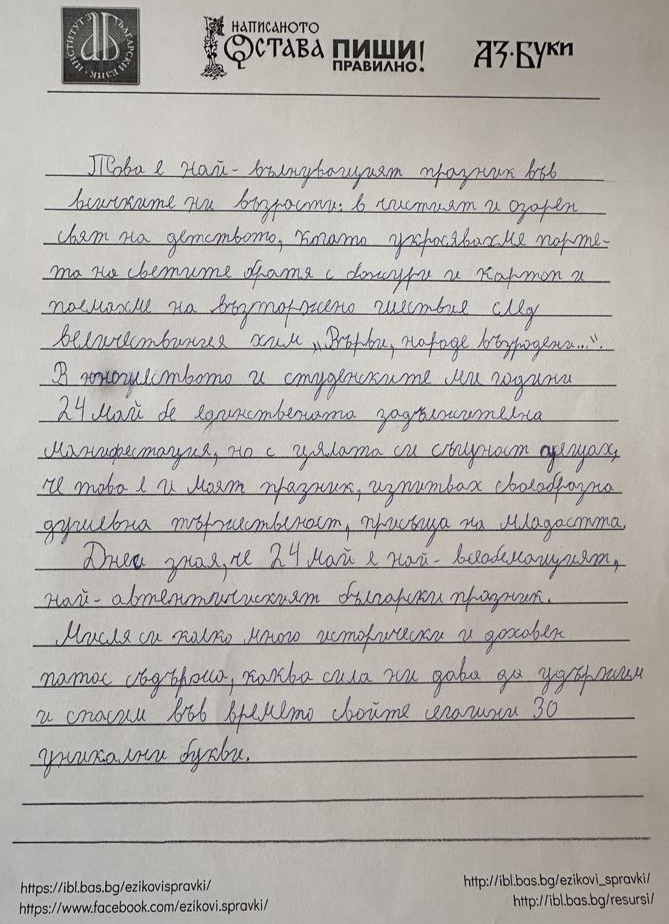 ИНСТИТУТ ЗА БЪЛГАРСКИ ЕЗИК
НАПИСАНОТО
ОСТАВА ПИШИ!
ПРАВИЛНО!
АЗ·БУКИ
Това е най-вълнуващият празник във
всичките ни възрасти: в чистият и озарен
свят на детството, когато украсявахме порте-
та на светите братя с божури и картон и
поемахме на възторжено шествие след
величествения химн „Върви, народе възродени...".
В юношеството и студенските ми години
24 май бе единствената задължителна
манифестация, но с цялата си същност усещах,
че това е и моят празник, изпитвах своеобразна
душевна тържественост, присъща на младостта.
Днес зная, че 24 май е най-всеобемащият,
най-автентическият български празник.
Мисля си колко много исторически и духовен
патос съдържа, каква сила ни дава да удържим
и спасим във времето свойте сегашни 30
уникални букви.
https://ibl.bas.bg/ezikovispravki/
https://www.facebook.com/ezikovi.spravki/
http://ibl.bas.bg/ezikovi_spravki/
http://ibl.bas.bg/resursi/